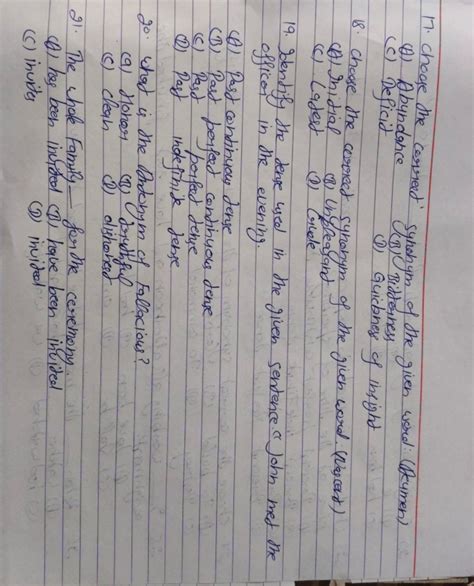 17. choose the correct synonym of the given word. (Acumen)
(A) Abundance (B) Bitterness
(C) Deficit (D) Quickness of insight
18. choose the correct synonym of the given word. (Nascent)
(A) Initial (B) Unpleasant
(C) Latest (D) Guide
19. Identify the tense used in the given sentence "John met the
officer in the evening
(A) Past continuous tense
(B) Past perfect continuous tense
(C) Past perfect tense
(D) Past indefinite tense
20. what is the Antonym of fallacious?
(A) Honest (B) truthful
(C) clean
21. The whole family — for the ceremony
(A) has been invited (B) have been invited
(C) invites (D) invited